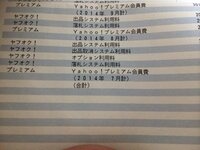 プレミアム Yahoo!プレミアム会員費
(2014年 9月計)
ヤフオク! 出品システム利用料
ヤフオク! 落札システム利用料
プレミアム Yahoo!プレミアム会員費
(2014年 8月計)
ヤフオク! 出品システム利用料
ヤフオク! 出品取消システム利用料
ヤフオク! オプション利用料
ヤフオク! 落札システム利用料
プレミアム Yahoo!プレミアム会員費
(2014年 7月計)
(合計)